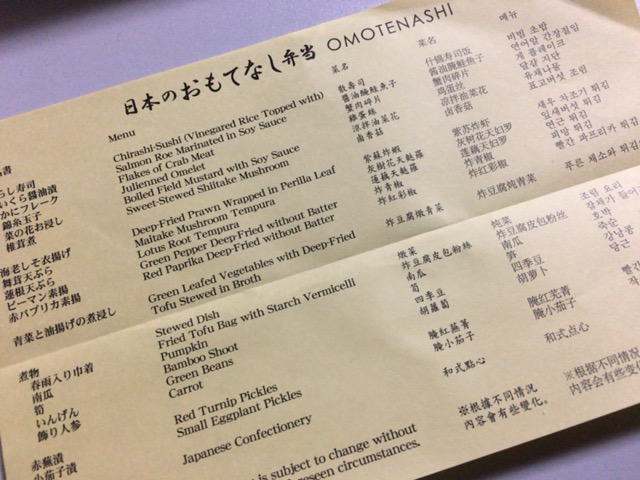 日本のおもてなし弁当 OMOTENASHI
書
らし寿司
いくら醤油漬
かにフレーク
錦糸玉子
菜の花お浸し
椎茸煮
海老しそ衣揚げ
舞茸天ぷら
蓮根天ぷら
ピーマン素揚
赤パプリカ素揚
青菜と油揚げの煮浸し
煮物
春雨入り巾着
南瓜
筍
いんげん
飾り人参
赤蕪漬
小茄子漬
Menu
Chirashi-Sushi (Vinegared Rice Topped with)
Salmon Roe Marinated in Soy Sauce
Flakes of Crab Meat
Julienned Omelet
Boiled Field Mustard with Soy Sauce
Sweet-Stewed Shiitake Mushroom
Deep-Fried Prawn Wrapped in Perilla Leaf
Maitake Mushroom Tempura
Lotus Root Tempura
Green Pepper Deep-Fried without Batter
Red Paprika Deep-Fried without Batter
Green Leafed Vegetables with Deep-Fried
Tofu Stewed in Broth
Stewed Dish
Fried Tofu Bag with Starch Vermicelli
Pumpkin
Bamboo Shoot
Green Beans
Carrot
Red Turnip Pickles
Small Eggplant Pickles
Japanese Confectionery
is subject to change without
seen circumstances.
菜名
散壽司
醬油醃鮭魚子
蟹肉碎片
雞蛋絲
涼拌油菜花
鹵香菇
紫蘇炸蝦
灰樹花天麩羅
蓮藕天麩羅
炸青椒
炸紅彩椒
炸豆腐燉青菜
燉菜
炸豆腐皮包粉絲
南瓜
筍
四季豆
胡蘿蔔
醃紅蕪菁
醃小茄子
和式點心
※根據不同情況
內容會有些變化。
菜名
什锦寿司饭
酱油腌鲑鱼子
蟹肉碎片
鸡蛋丝
凉拌油菜花
卤香菇
紫苏炸虾
灰树花天妇罗
莲藕天妇罗
炸青椒
炸红彩椒
炸豆腐炖青菜
炖菜
炸豆腐皮包粉丝
南瓜
笋
四季豆
胡萝卜
腌红芜菁
腌小茄子
和式点心
※根据不同情况
内容会有些变化
메뉴
비빔 초밥
연어알 간장절임
게 플레이크
달걀 지단
유채나물
표고버섯 조림
새우 차조기 튀김
잎새버섯 튀김
연근 튀김
피망 튀김
빨간 파프리카 튀김
푸른 채소와
조림 요리
잡채가
호박
죽순
강낭콩
당근
빨간